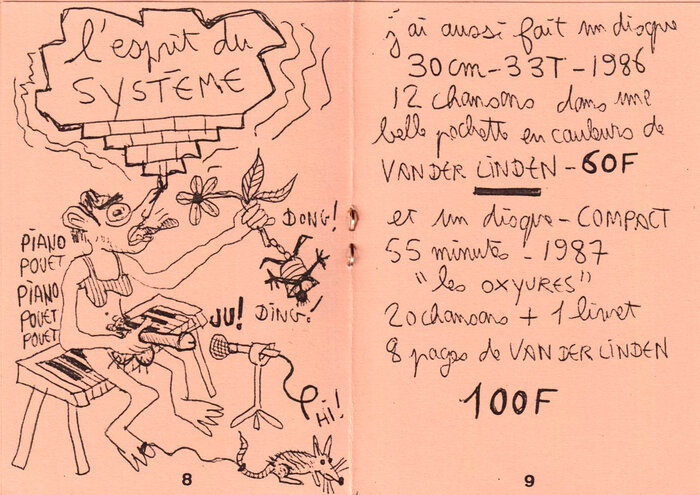 l'esprit du
SYSTÈME
PIANO
POUET
PIANO
POUET
POUET
DONG!
JU!
DING!
HI!
8
j'ai aussi fait un disque
30cm-33T-1986
12 chansons dans une
belle pochette en couleurs de
VANDER LINDEN - 60F
et un disque - COMPACT
55 minutes - 1987
"les OXYURES"
20 chansons + 1 livret
8 pages de VAN DER LINDEN
100F
9